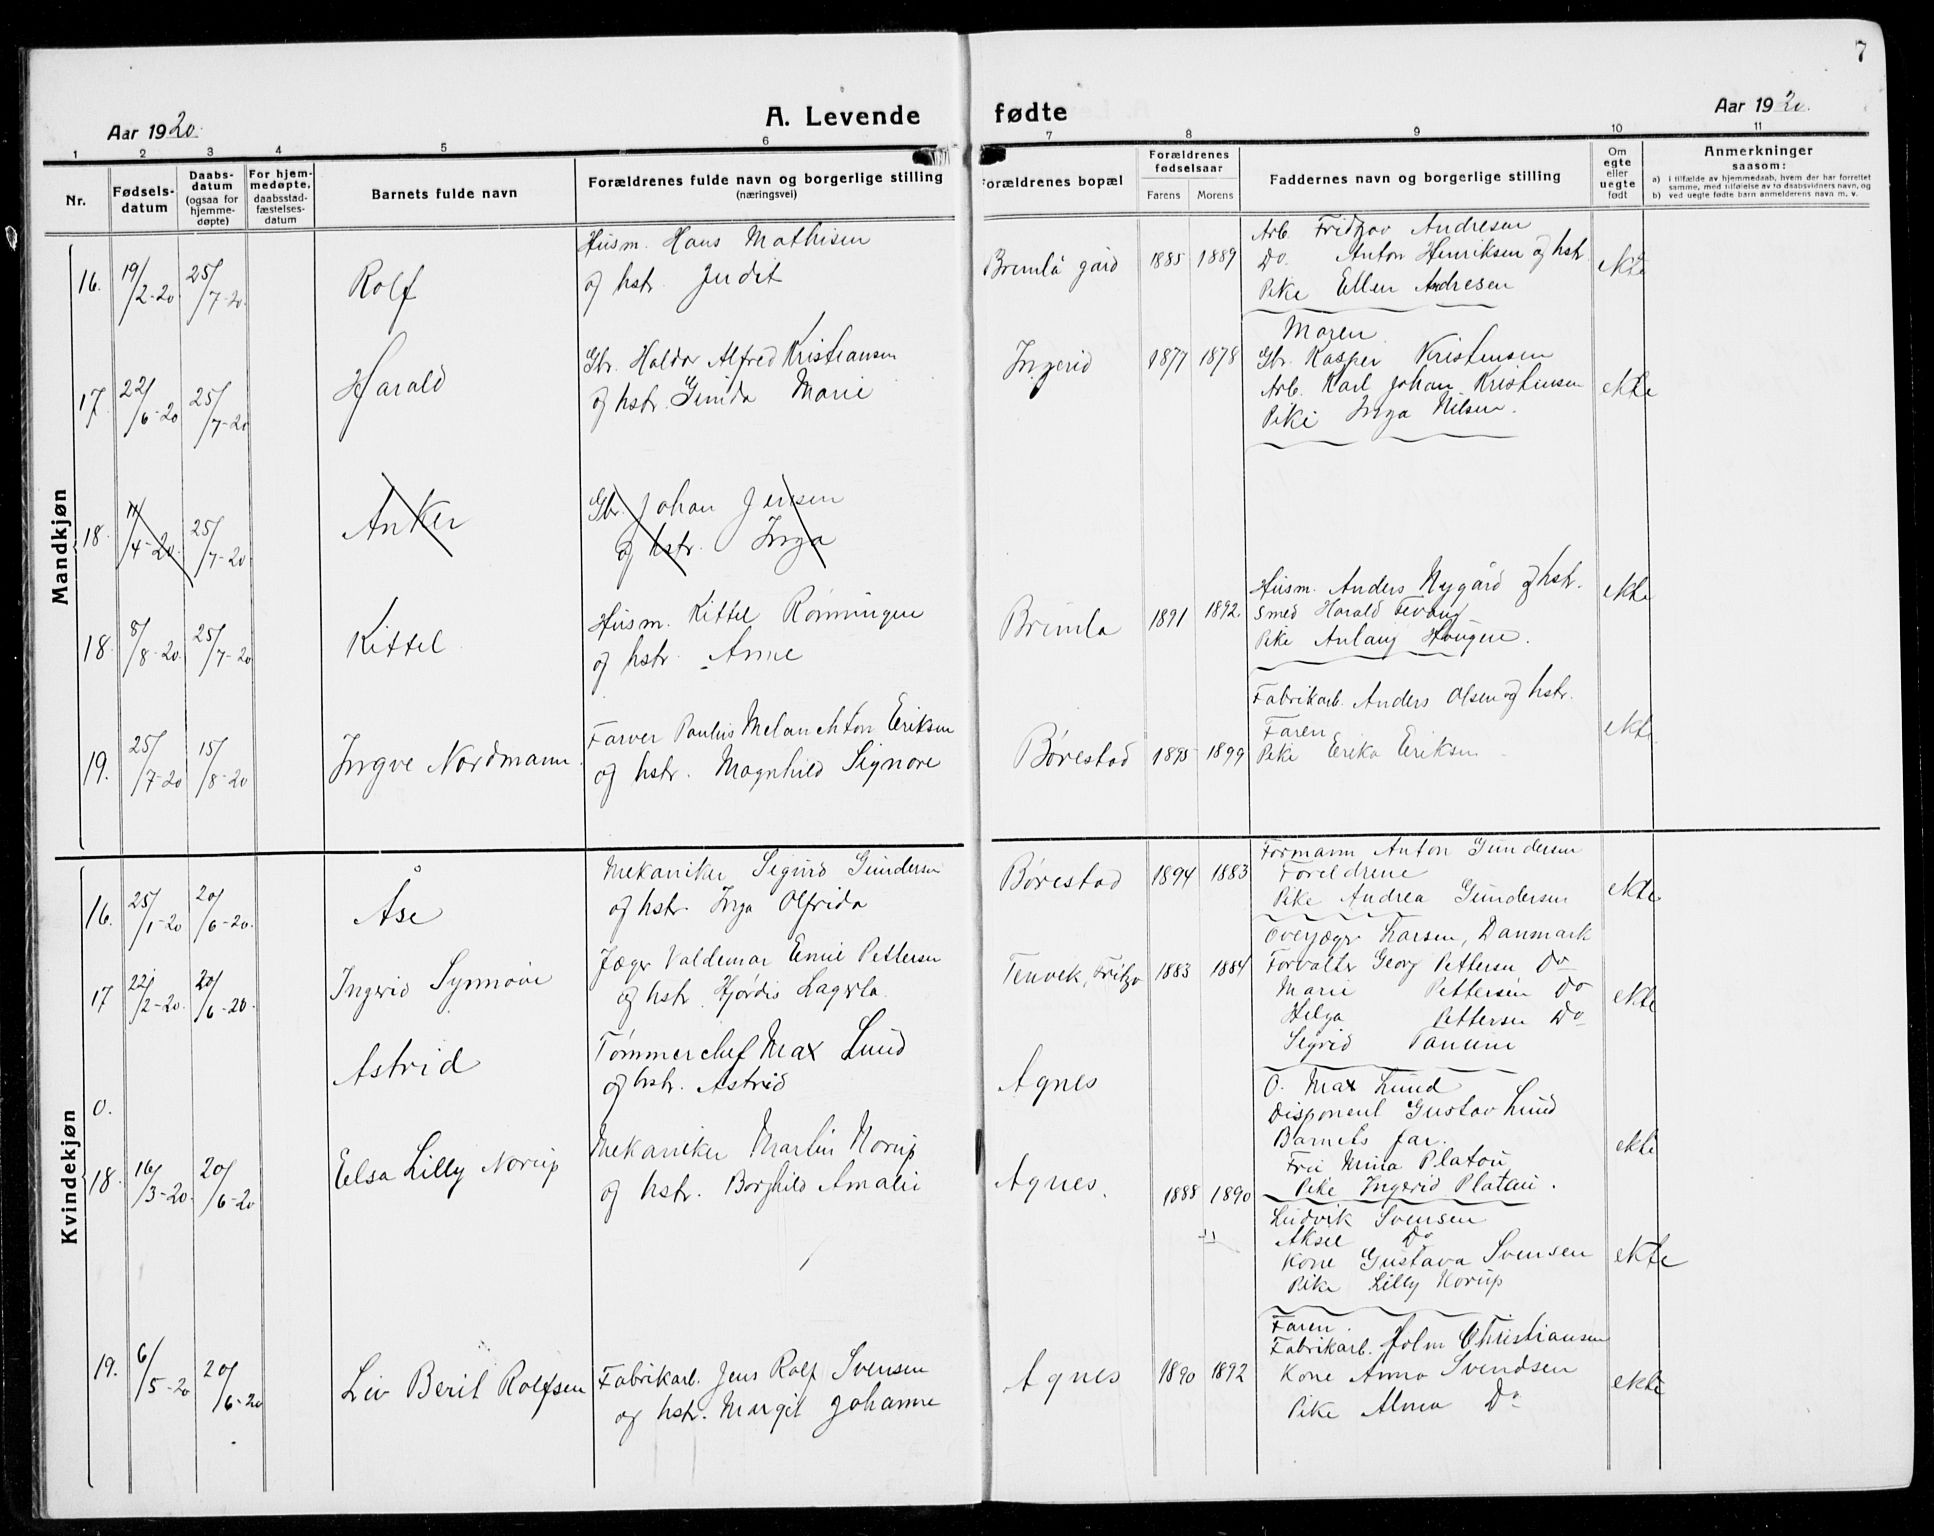 7
Aar 1920.
A. Levende fødte
Aar 1920.
1 2 3 4 5 6 7 8 9 10 11
Nr.
Fødsels-
datum
Daabs-
datum
(ogsaa for
hjemme-
døpte)
For hjem-
medøpte,
daabsstad-
fæstelses-
datum
Barnets fulde navn
Forældrenes fulde navn og borgerlige stilling
(næringsvei)
Forældrenes bopæl
Forældrenes
fødselsaar
Farens Morens
Faddernes navn og borgerlige stilling
Om
egte
eller
uegte
født
Anmerkninger
saasom:
a) i tilfælde av hjemmedaab, hvem der har forrettet
samme, med tilføielse av to daabsvidners navn, og
b) ved uegte fødte barn anmelderens navn m. v.
Mandkjøn
16. 19/2-20 25/7-20. Rolf
Husm. Hans Mathisen
og hstr. Judit
Bremlå gård 1885 1889
Arb. Fridtjov Andresen
Do. Anton Henriksen og hstr.
Pike Ellen Andresen
ekte
17. 22/6-20 25/7-20 Harald
Gbr. Haldor Alfred Kristiansen
og hstr. Gunda Marie
Ingerid 1877 1878
Moren
Gbr. Kasper Kristensen
Arb. Karl Johan Kristensen
Pike Inga Nilsen.
ekte
18. 11/4-20. 25/7-20 Anker
Gbr. Johan Jensen
og hstr. Inga
18. 5/8-20. 25/7-20 Kittel
Husm. Kittel Rønningen
og hstr. Anne
Bremla 1891 1892.
Husm. Anders Nygård og hstr.
Smed Harald Tevang
Pike Anlaug Haugen.
ekte
19. 25/7-20 15/8-20 Ingve Nordmann.
Farver Paulus Melanchton Eriksen
og hstr. Magnhild Signore
Børestad 1895 1899
Fabrikarb. Anders Olsen og hstr.
Faren
Pike Erika Eriksen
ekte
Kvindekjøn
16. 25/1-20 20/6-20. Åse
Mekaniker Sigurd Gundersen
og hstr. Inga Olfrida
Børestad 1894 1883
Formann Anton Gundersen
Foreldrene
Pike Andrea Gundersen
ekte
17 22/2-20. 20/6-20. Ingerid Synnøve
Jæger Valdemar Emil Pettersen
og hstr. Hjørdis Lagerla.
Tenvik, Fritzø 1883 1884
Overjæger Larsen, Danmark
Forvalter Georg Pettersen Do
Marie Pettersen Do
Helga Pettersen Do
Sigrid Tanum
ekte
0. Astrid
Tømmerchef Max Lund
og hstr. Astrid
Agnes
O. Max Lund
Disponent Gustav Lund
Barnets far.
Fru Mina Platou
Pike Ingerid Platou.
ekte
18. 16/3-20. 20/6-20 Elsa Lilly Norup
Mekaniker Martin Norup
og hstr. Borghild Amalie
Agnes. 1888 1890
Ludvik Svensen
Aksel Do
Kone Gustava Svensen
Pike Lilly Norup
ekte
19. 6/5-20 20/6-20 Liv Beril Rolfsen
Fabrikarb. Jens Rolf Svensen
og hstr. Margit Johanne
Agnes 1890 1892
Faren.
Fabrikarb. Holm Christiansen
Kone Anna Svendsen
Pike Alma Do
ekte